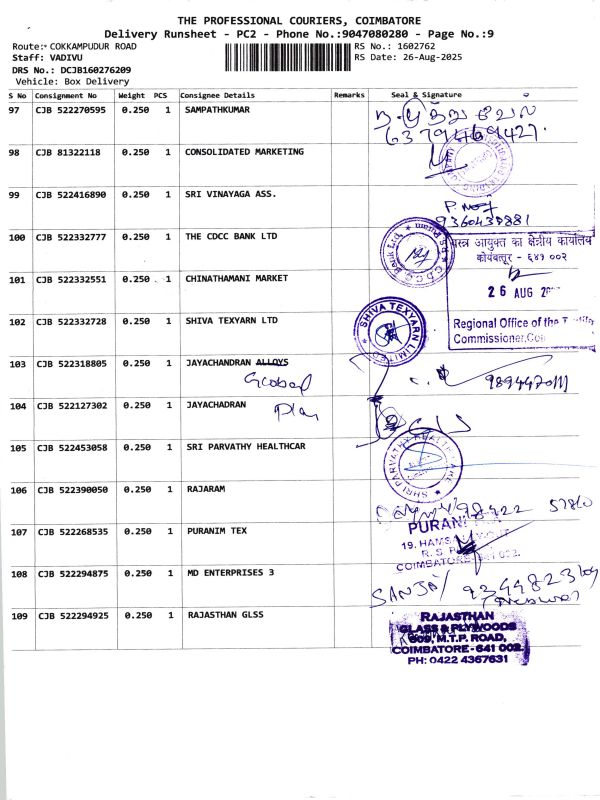 THE PROFESSIONAL COURIERS, COIMBATORE
Delivery Runsheet - PC2 - Phone No.:9047080280 - Page No.:9
Route:* COKKAMPUDUR ROAD
RS No.: 1602762
Staff: VADIVU
RS Date: 26-Aug-2025
DRS No.: DCJB160276209
Vehicle: Box Delivery
S No Consignment No Weight PCS Consignee Details Remarks Seal & Signature
97 CJB 522270595 0.250 1 SAMPATHKUMAR
6379469427.
98 CJB 81322118 0.250 1 CONSOLIDATED MARKETING
99 CJB 522416890 0.250 1 SRI VINAYAGA ASS.
9360439881
100 CJB 522332777 0.250 1 THE CDCC BANK LTD
क्षेत्रीय कार्यालय
कोयंबत्तूर - ६४१ ००२
101 CJB 522332551 0.250 1 CHINATHAMANI MARKET
26 AUG
102 CJB 522332728 0.250 1 SHIVA TEXYARN LTD
SHIVA TEXYARN LIMITED
Regional Office of the
Commissioner,
103 CJB 522318805 0.250 1 JAYACHANDRAN ALLOYS
Global
104 CJB 522127302 0.250 1 JAYACHADRAN
105 CJB 522453058 0.250 1 SRI PARVATHY HEALTHCAR
SHRI PARVATHY HEALTH CARE
106 CJB 522390050 0.250 1 RAJARAM
98422 57810
107 CJB 522268535 0.250 1 PURANIM TEX
PURANI
19, HAMSA
COIMBATORE - 641 002.
108 CJB 522294875 0.250 1 MD ENTERPRISES 3
SANJAY
109 CJB 522294925 0.250 1 RAJASTHAN GLSS
RAJASTHAN
GLASS & PLYWOODS
609, M.T.P. ROAD,
COIMBATORE - 641 002.
PH: 0422 4367631